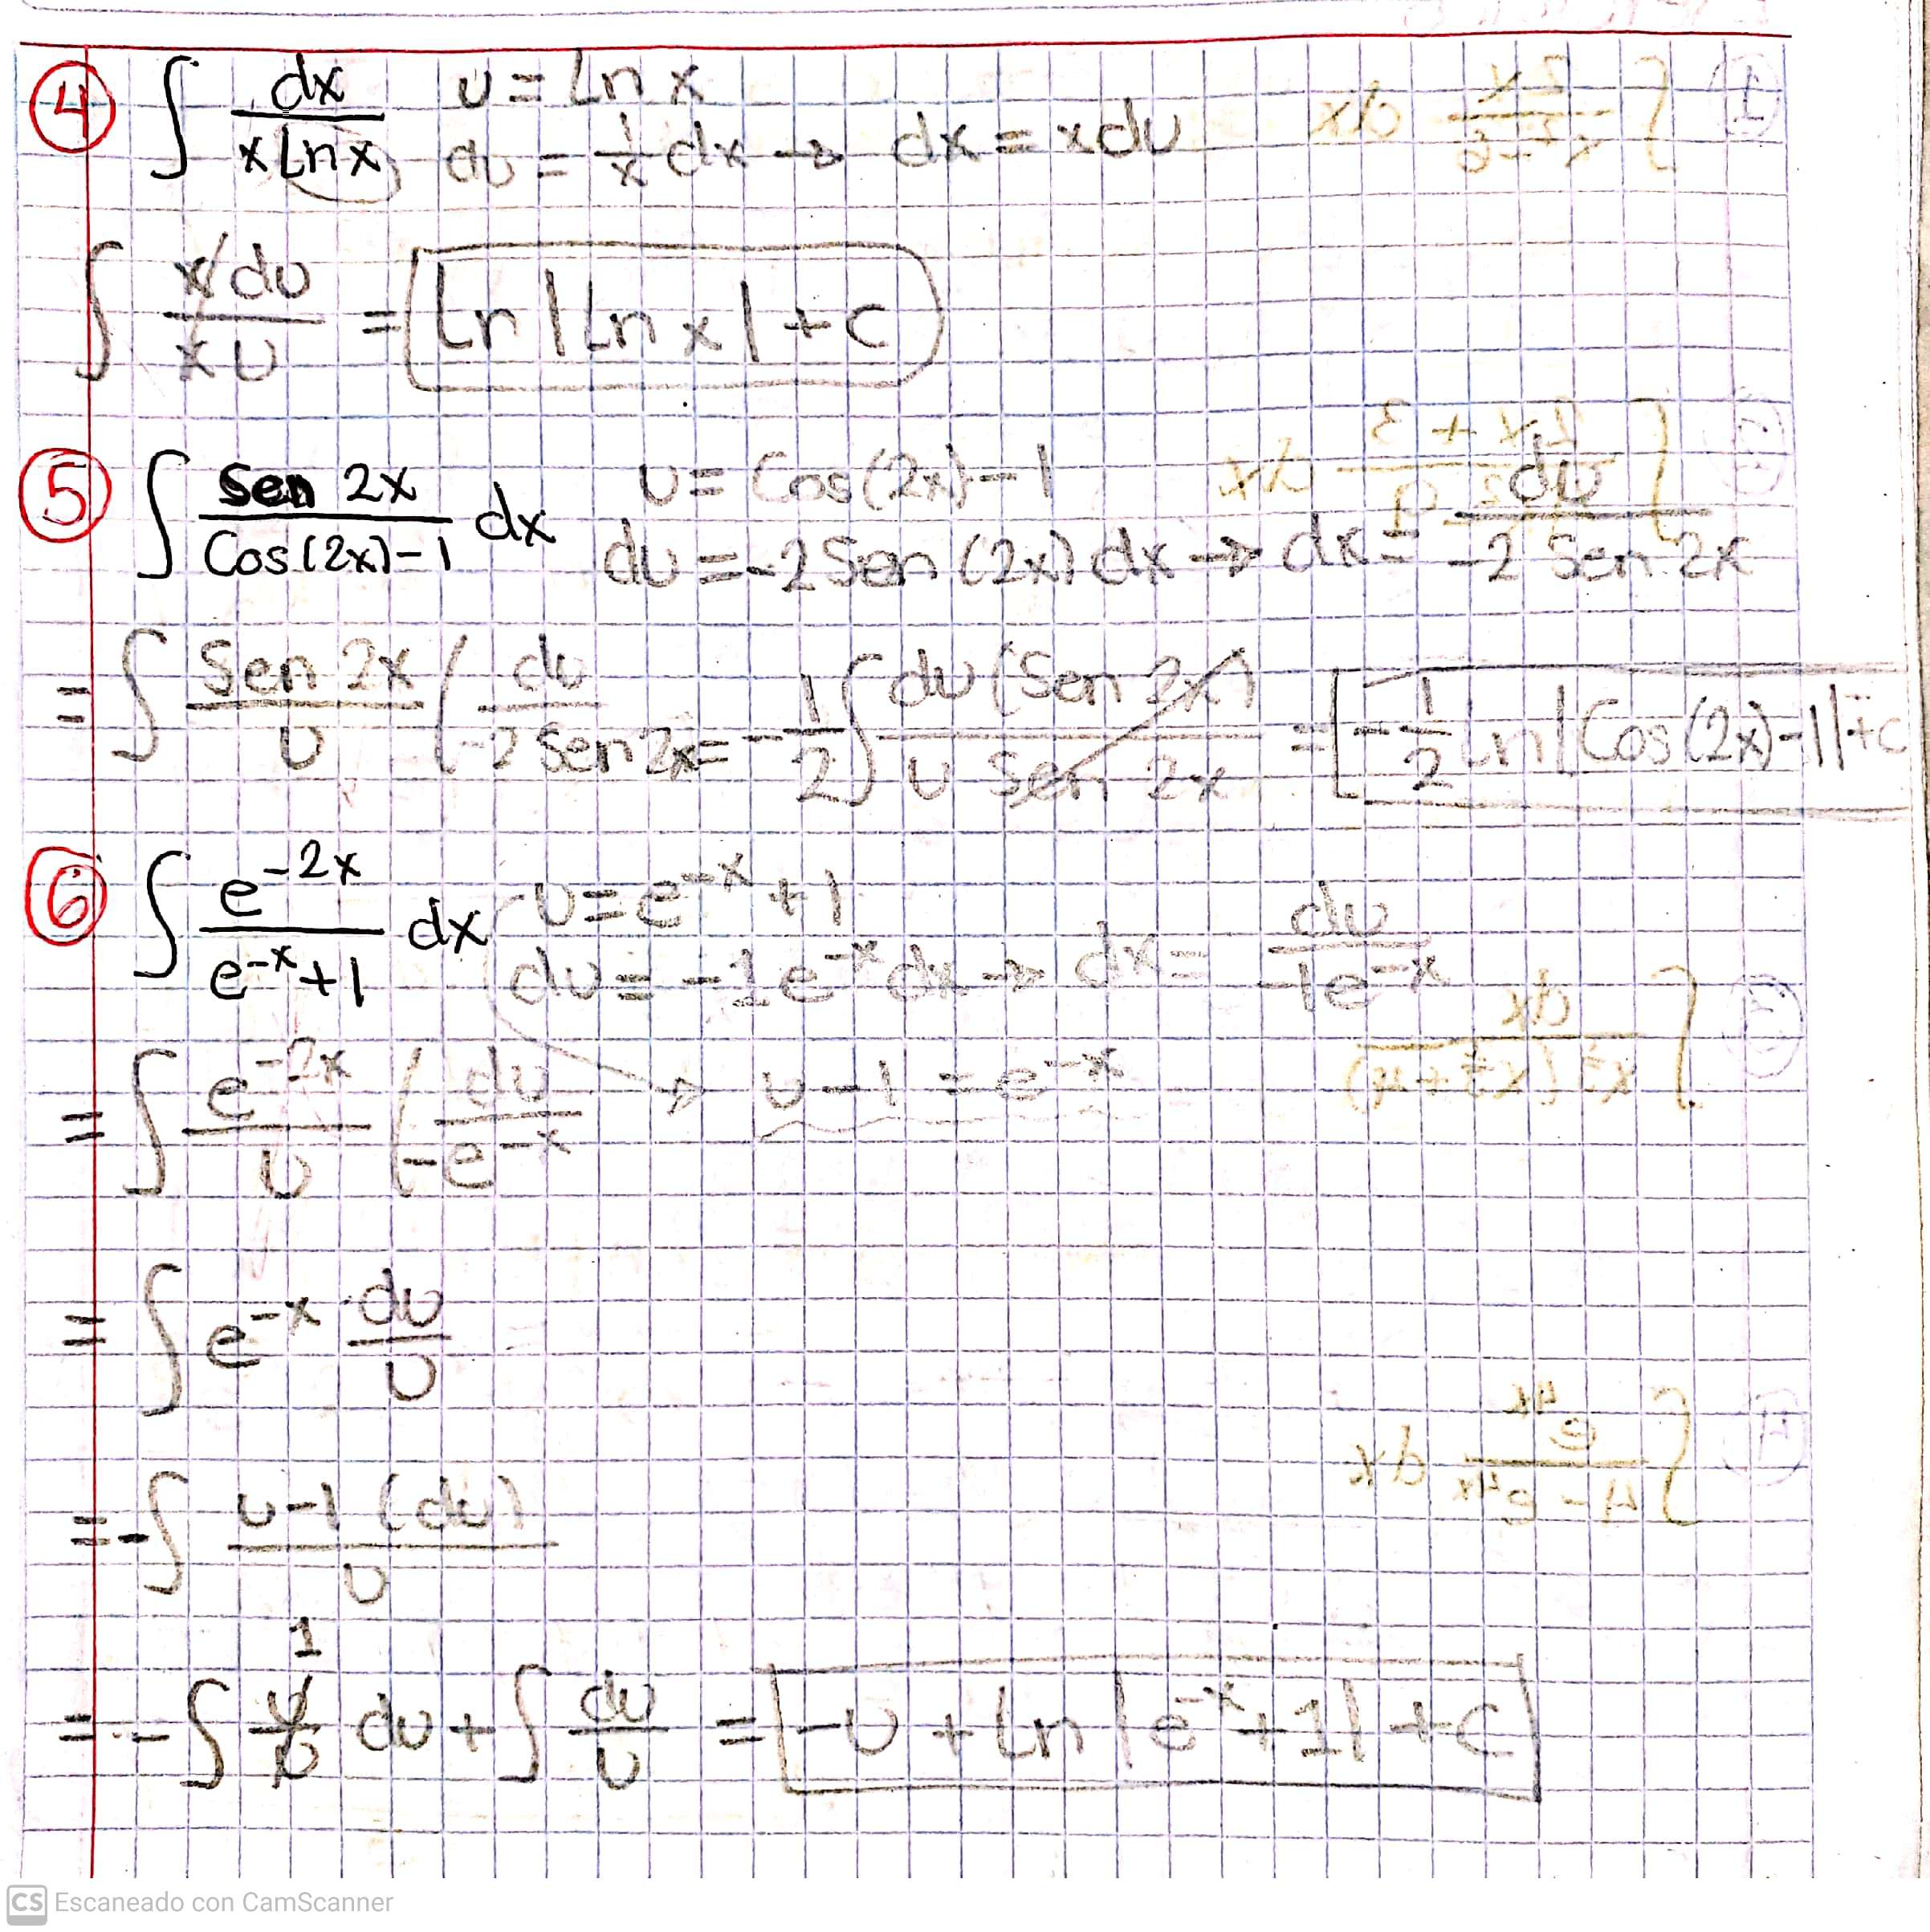 ④ ∫ dx / (x Ln x)   u = Ln x
du = 1/x dx → dx = x du
∫ x du / (x u) = Ln |Ln x| + c
⑤ ∫ Sen 2x / (Cos(2x)-1) dx   u = Cos(2x)-1
du = -2 Sen (2x) dx → dx = du / (-2 Sen 2x)
= ∫ Sen 2x / u ( du / (-2 Sen 2x) = -1/2 ∫ du (Sen 2x) / (u Sen 2x) = -1/2 Ln |Cos(2x)-1| + c
⑥ ∫ e^(-2x) / (e^(-x)+1) dx   u = e^(-x) + 1
du = -1e^(-x) dx → dx = du / (-1e^(-x))
= ∫ e^(-2x) / u ( du / (-e^(-x)) → u-1 = e^(-x)
= ∫ e^(-x) · du / u
= -∫ u-1 (du) / u
1
= -∫ u/u du + ∫ du/u = -u + Ln |e^(-x)+1| + c
CS Escaneado con CamScanner